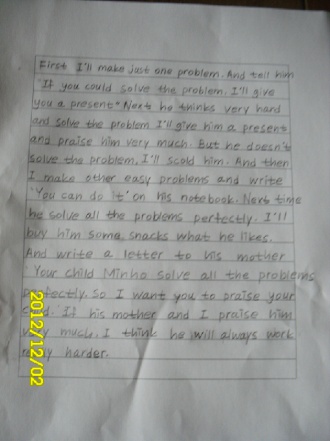 First I'll make just one problem. And tell him
"If you could solve the problem. I'll give
you a present" Next he thinks very hard
and solve the problem I'll give him a present
and praise him very much. But he doesn't
solve the problem. I'll scold him. And then
I make other easy problems and write
"You can do it" on his notebook. Next time
he solve all the problems perfectly. I'll
buy him some snacks what he likes.
And write a letter to his mother
"Your child Minho solve all the problems
perfectly. So I want you to praise your
child." If his mother and I praise him
very much. I think he will always work
harder.
2012/12/02